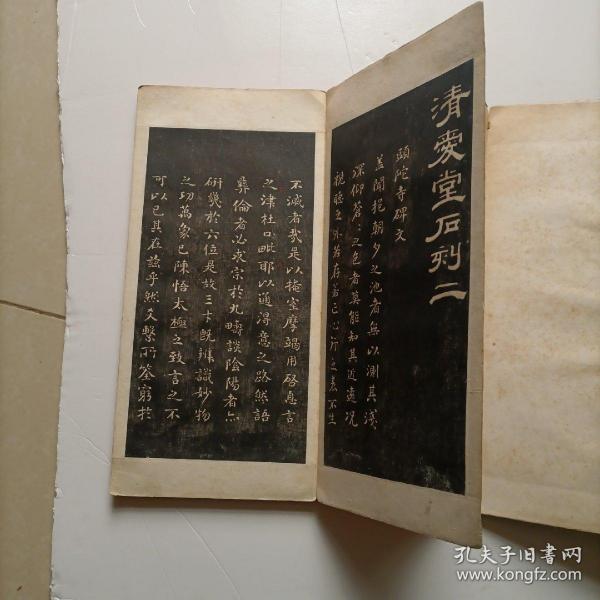 清愛堂石刻二
頭陀寺碑文
蓋聞挹朝夕之池者無以測其淺
深仰蒼〻之色者莫能知其近遠況
視聽之外若存若亡心行之表不生
不滅者哉是以掩室摩竭用啓息言
之津杜口毗耶以通得意之路然語
彝倫者必求宗於九疇談陰陽者亦
研幾於六位是故三才既辨識妙物
之功萬象已陳悟太極之致言之不
可以已其在兹乎然爻繫所筌窮於
孔夫子旧书网
www.kongfz.com